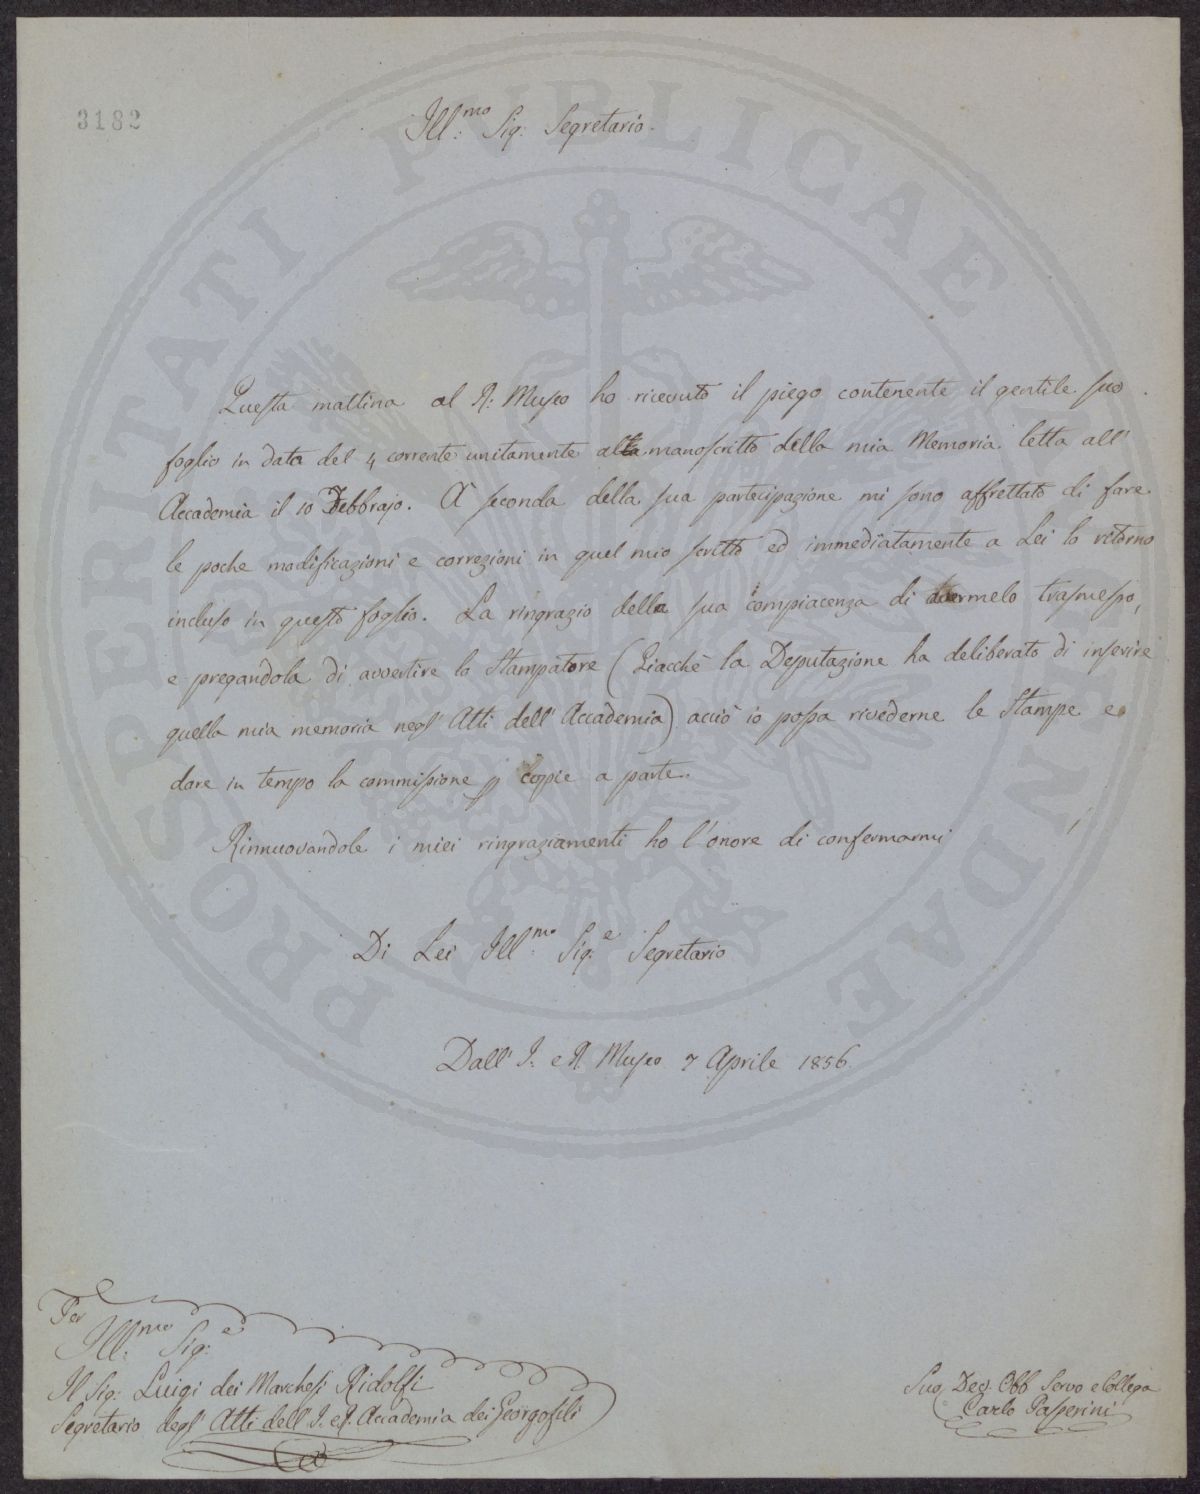 3182
Ill:mo Sig: Segretario.
PROSPERITATI PUBLICAE AUGENDAE
Questa mattina al R: Museo ho ricevuto il piego contenente il gentile suo
foglio in data del 4 corrente unitamente al manoscritto della mia Memoria letta all'
Accademia il 10 Febbrajo. A seconda della sua partecipazione mi sono affrettato di fare
le poche modificazioni e correzioni in quel mio scritto ed immediatamente a Lei lo ritorno
incluso in questo foglio. La ringrazio della sua compiacenza di avermelo trasmesso,
e pregandola di avvertire lo Stampatore (Giacchè la Deputazione ha deliberato di inserire
quella mia memoria negl' Atti dell' Accademia) acciò io possa rivederne le Stampe e
dare in tempo la commissione p copie a parte.
Rinnuovandole i miei ringraziamenti ho l'onore di confermarmi
Di Lei Ill:mo Sig:e Segretario
Dall' I: e R. Museo 7 Aprile 1856.
Per
Ill:mo Sig:e
Il Sig: Luigi dei Marchesi Ridolfi
Segretario degl' Atti dell' I. e R. Accademia dei Georgofili
Suo Dev. Obb Servo e Collega
Carlo Passerini